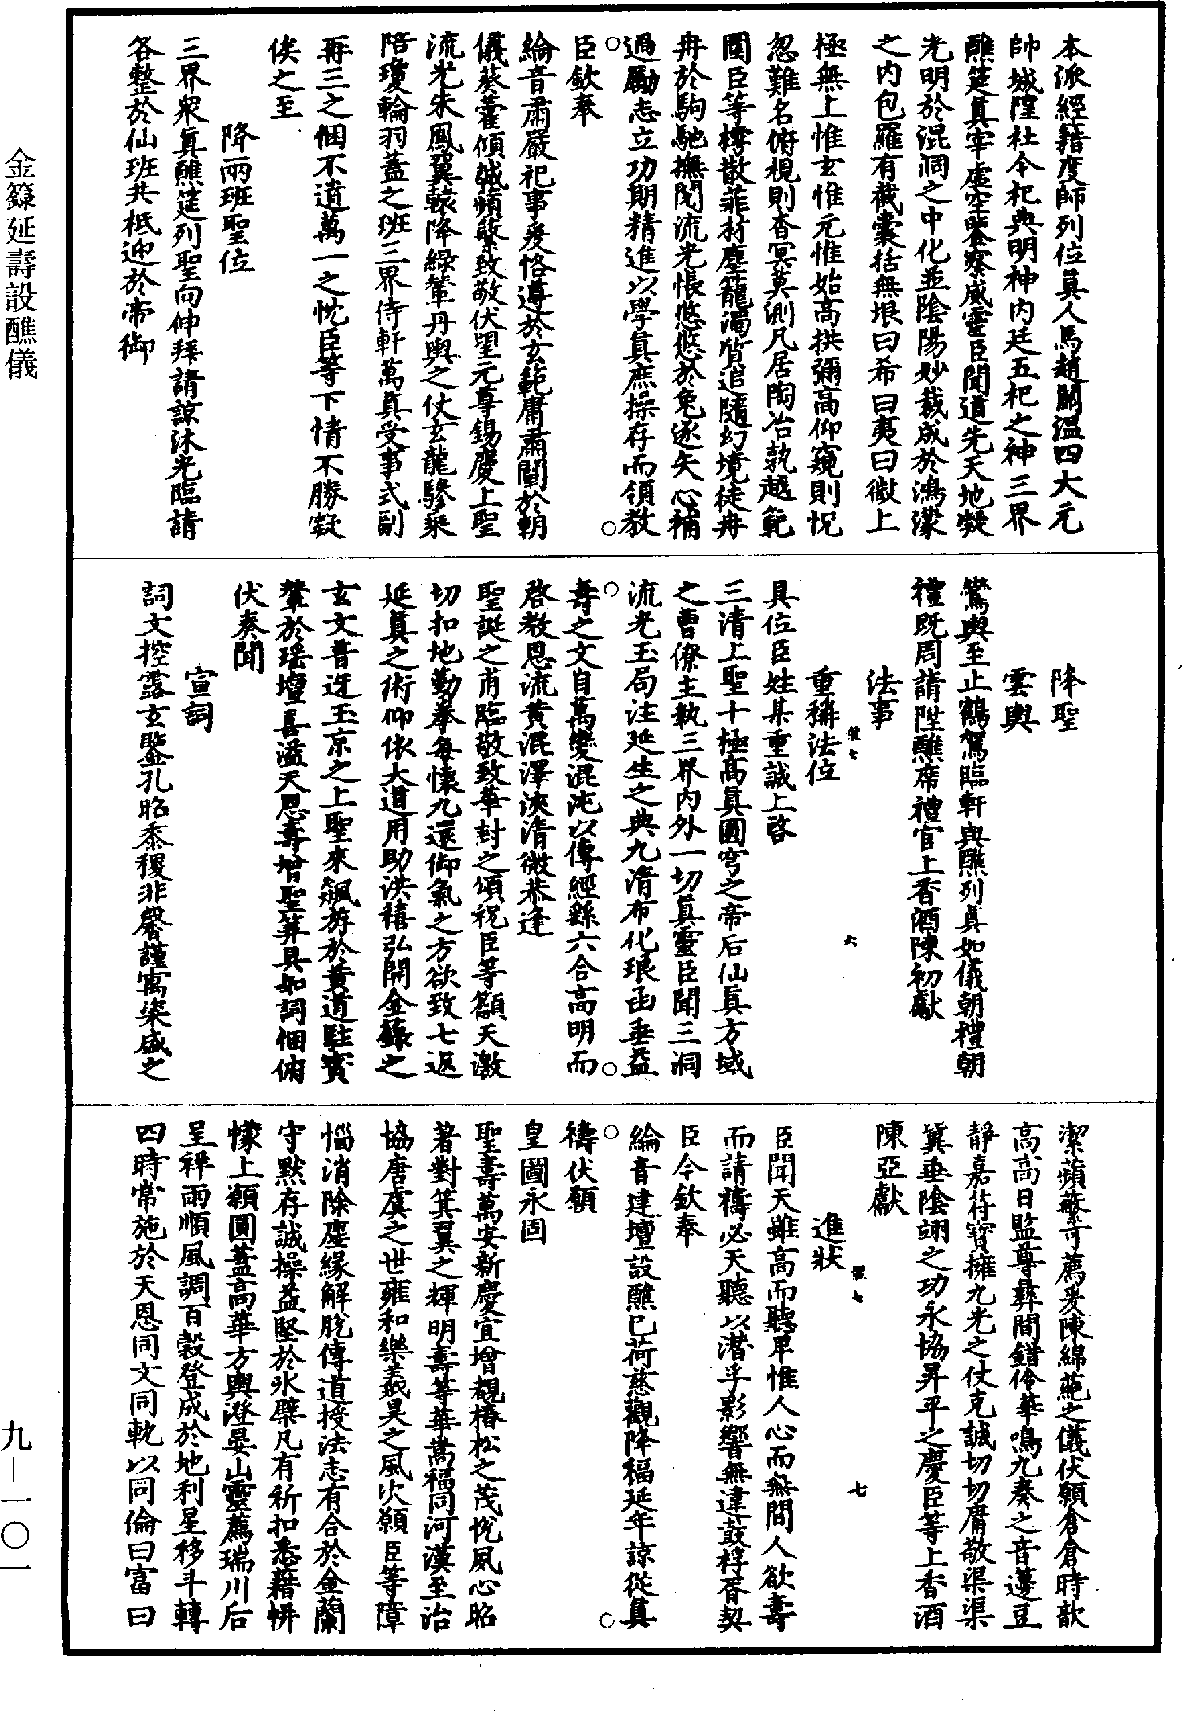 本派經籍度師列位真人馬趙關溫四大元
帥城隍社令祀典明神內廷五祀之神三界
醮筵真宰虛空鑒察威靈臣聞道先天地凝
光明於混洞之中化並陰陽妙裁成於鴻濛
之內包羅有截囊括無垠曰希曰夷曰微上
極無上惟玄惟元惟始高拱彌高仰窺則怳
忽難名俯視則杳冥莫測凡居陶冶孰越範
圍臣等樗散菲材塵籠濁質追隨幻境徒舟
舟於駒馳撫閱流光悵悠悠於兔逐矢心補
過勵志立功期精進以學真庶操存而領教
臣欽奉
綸音肅嚴祀事爰恪遵於玄範庸肅闡於朝
儀葵藿傾誠蘋蘩致敬伏望元尊錫慶上聖
流光朱鳳翼轅降綠輦丹輿之仗玄龍驂乘
陪瓊輪羽蓋之班三界侍軒萬真受事式副
再三之悃不遺萬一之忱臣等下情不勝凝
俟之至
降兩班聖位
三界眾真醮筵列聖向伸拜請諒沐光臨請
各整於仙班共祗迎於帝御
降聖
雲輿
鸞輿至止鶴駕臨軒與醮列真如儀朝禮朝
禮既周請陞醮席禮官上香酒陳初獻
法事
重稱法位
具位臣姓某重誠上啓
三清上聖十極高真圓穹之帝后仙真方域
之曹僚主執三界內外一切真靈臣聞三洞
流光玉局注延生之典九清布化琅函垂益
壽之文自萬變混沌以傳經繇六合高明而
啓教恩流黃混澤浹清微恭逢
聖誕之甫臨敬致華封之頌祝臣等籲天激
切扣地勤拳每懷九還御氣之方欲致七返
延真之術仰依大道用助洪禧弘開金籙之
玄文普迓玉京之上聖來飆斿於黃道駐寳
輦於瑤壇喜溢天恩壽增聖筭具如詞悃俯
伏奏聞
宣詞
詞文控露玄鑒孔昭黍稷非馨謹寓粢盛之
潔蘋蘩可薦爰陳綿蕝之儀伏願倉倉時歆
高高日監尊彝間錯伶華鳴九奏之音籩豆
靜嘉符寳擁九光之仗克誠切切庸敬渠渠
冀垂陰翊之功永協昇平之慶臣等上香酒
陳亞獻
進狀
臣聞天雖高而聽卑惟人心而無間人欲壽
而請禱必天聽以潛孚影響無違鼓桴莕契
臣今欽奉
綸音建壇設醮已荷慈觀降福延年諒從真
禱伏願
皇圖永固
聖壽萬安新慶宜增覩椿松之茂悅夙心昭
著對箕翼之輝明壽等華嵩福同河漢至治
協唐虞之世雍和樂羲昊之風次願臣等障
惱消除塵緣解脫傳道授法志有合於金蘭
守默存誠操益堅於氷檗凡有祈扣悉藉帡
幪上願圓蓋高華方輿澄晏山靈薦瑞川后
呈祥雨順風調百穀登成於地利星移斗轉
四時常施於天恩同文同軌以同倫曰富曰
六
七
金籙延壽設醮儀
九—一〇一